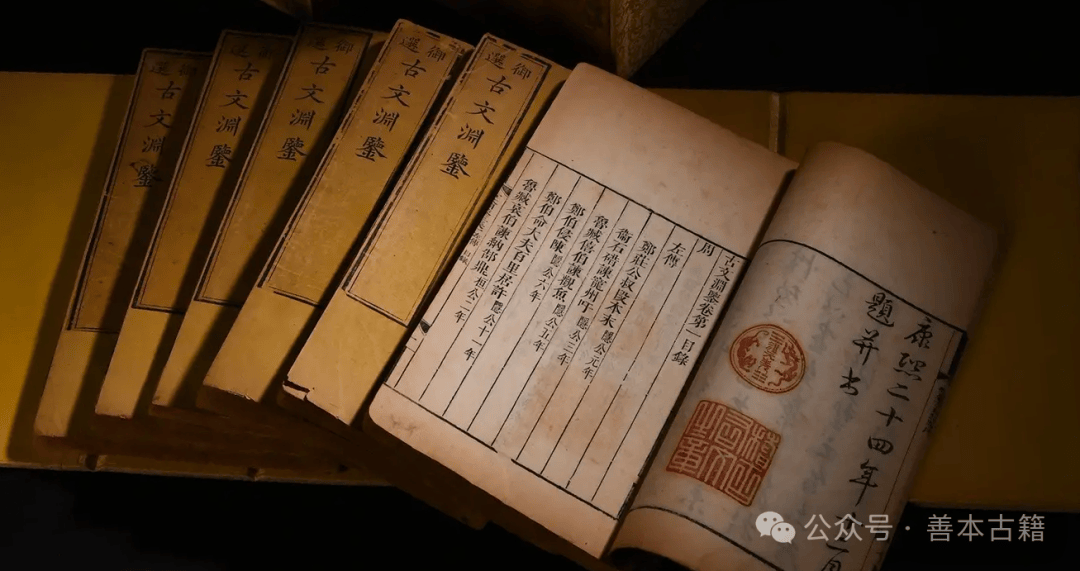 御選
古文淵鑒
御選
古文淵鑒
御選
古文淵鑒
御選
古文淵鑒
御選
古文淵鑒
康熙二十四年
月
題并書
稽古右文之章
古文淵鑒卷第一目錄
周
左傳
鄭莊公叔段本末 隱公元年
衞石碏諫寵州吁 隱公三年
魯臧僖伯諫觀魚 隱公五年
鄭伯侵陳 隱公六年
鄭伯命大夫百里居許 隱公十一年
魯臧哀伯諫納郜鼎 桓公二年
公众号 · 善本古籍